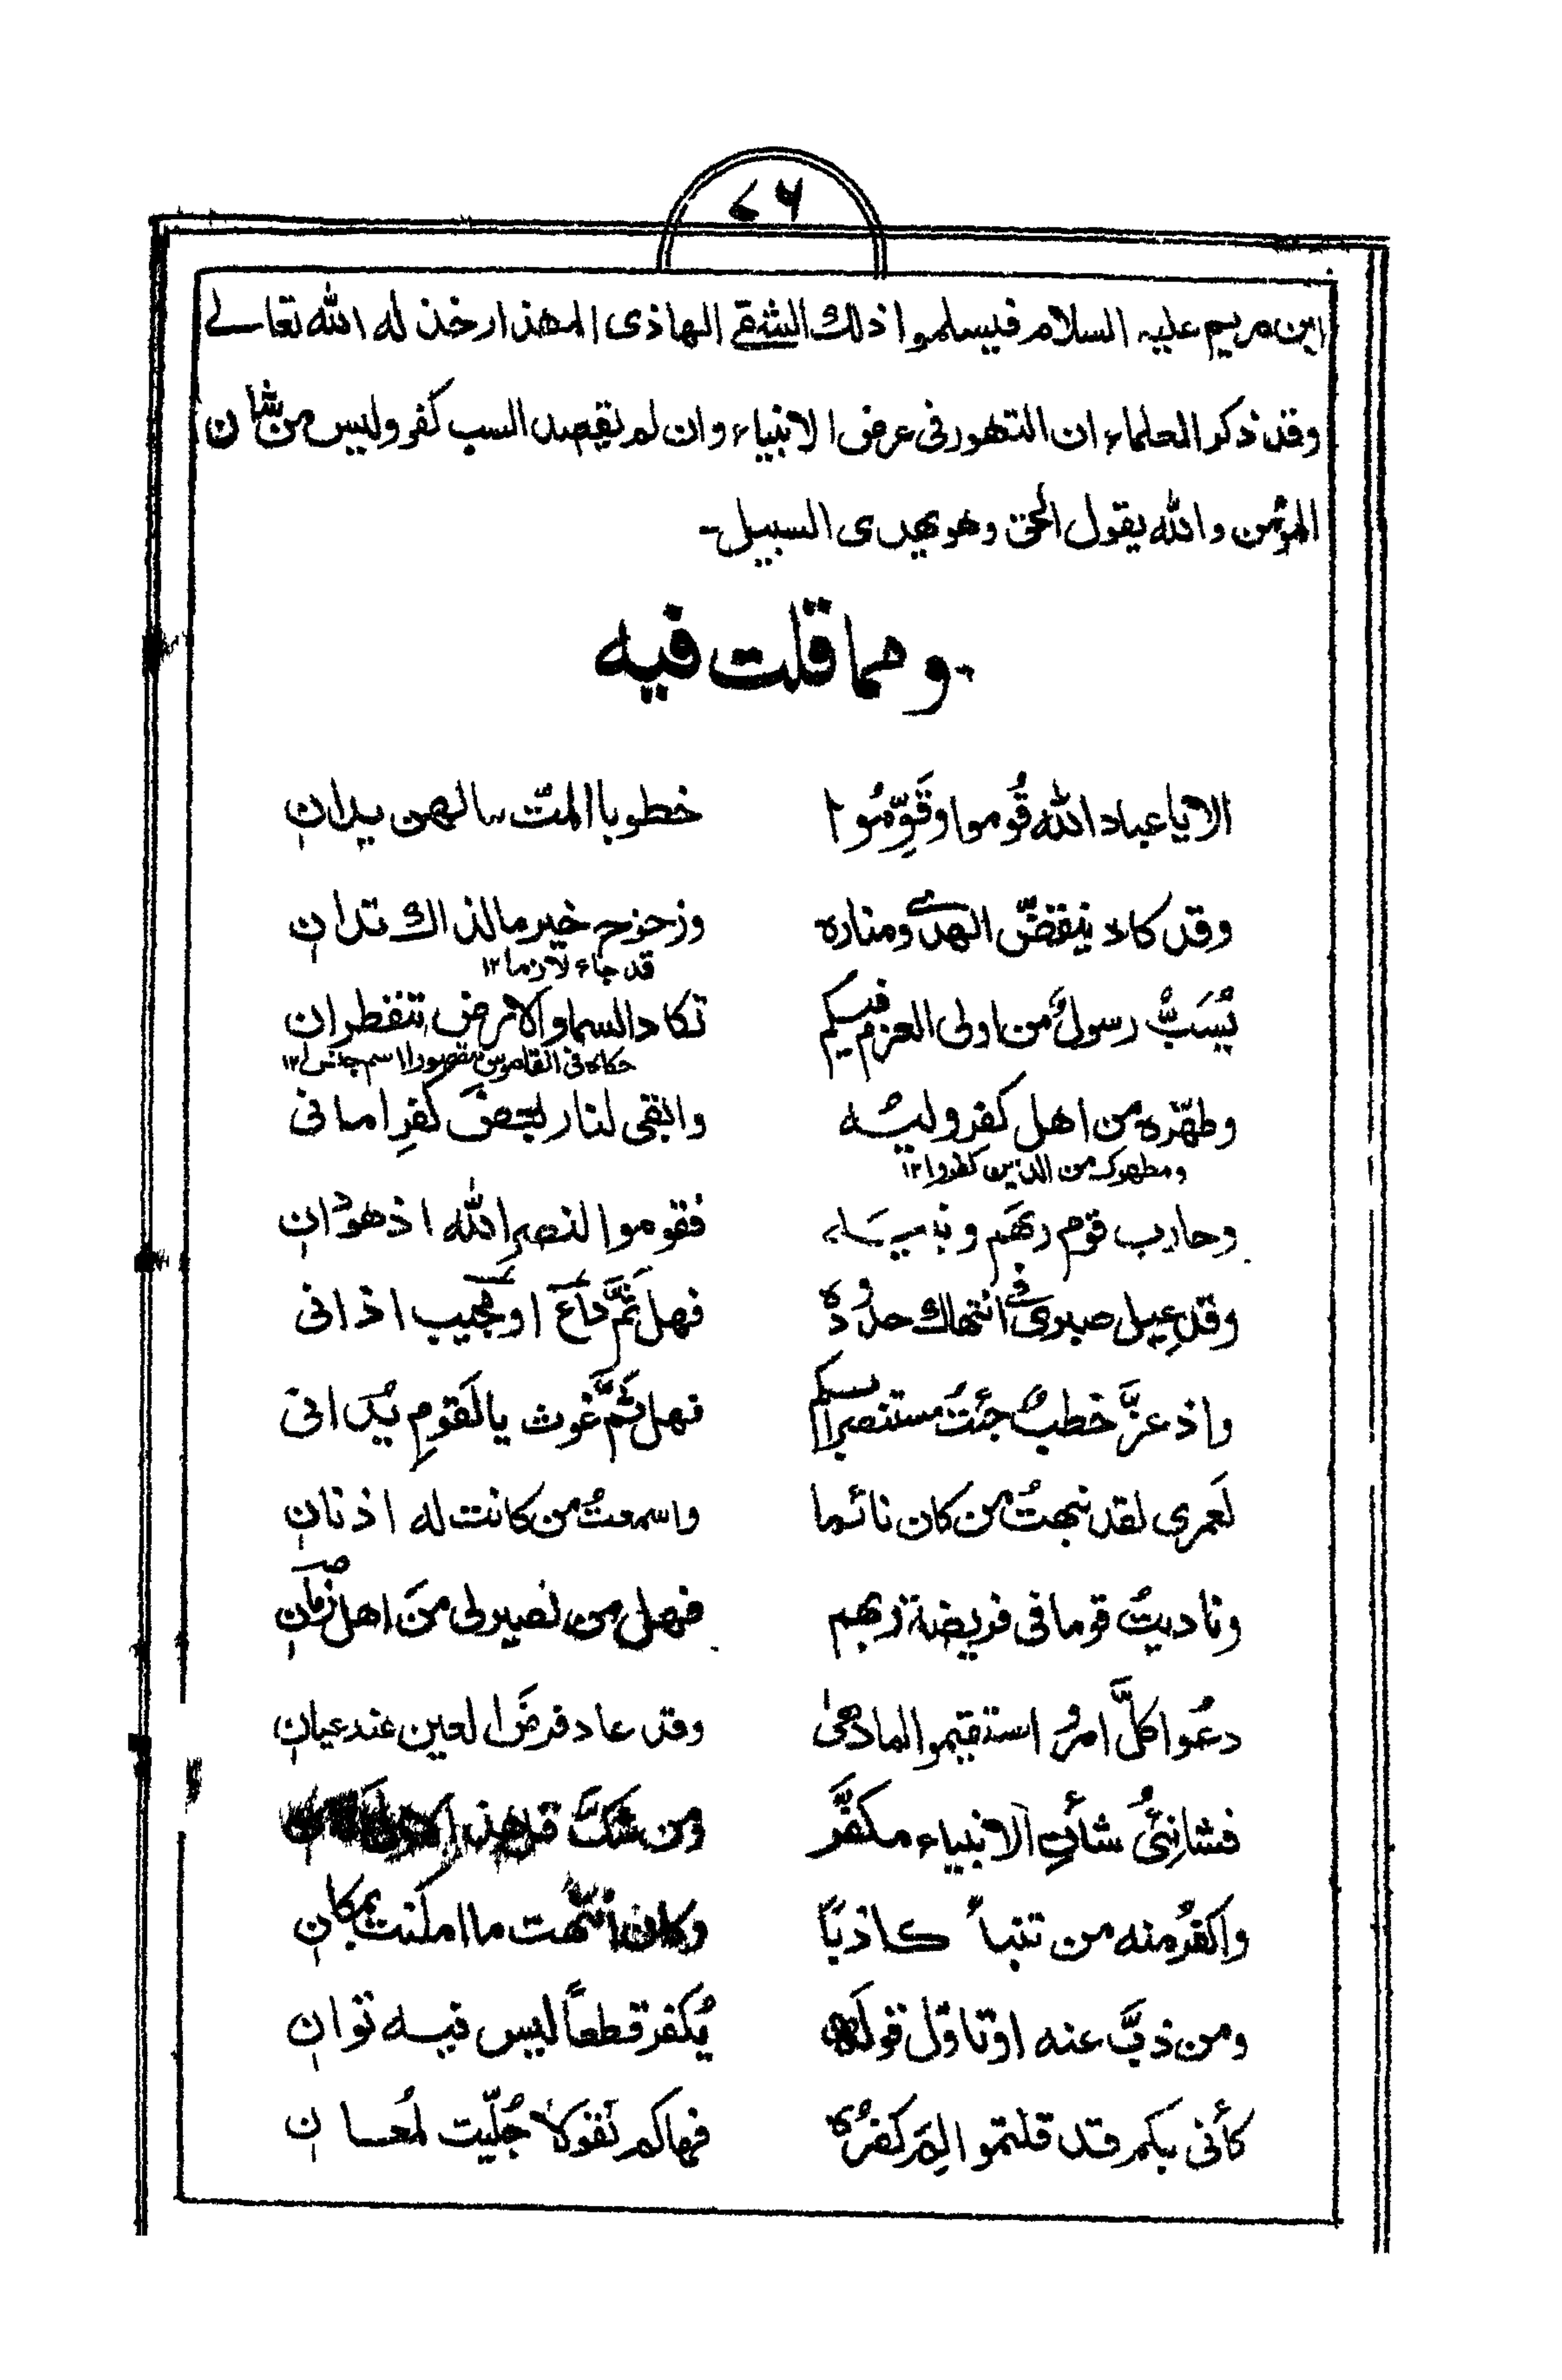 ٧٦
ابن مريم عليه السلام فيسلموا ذلك الشقے الهاذى المهذار خذ له الله تعالے
وقد ذكر العلماء ان التهور فى عرض الانبياء وان لم يقصد السب كفر وليس من شان
المؤمن والله يقول الحق وهو يهدى السبيل۔
ومما قلت فيه
الا يا عباد الله قُوموا وقَوِّمُوا خطوبا المتّ ما لهن يدانِ
وقد كاد ينقضّ الهدے ومناره وزحزح خير ما لذاك تدانِ
قد جاء لازما ١٢
يُسَبُّ رسولٌ من اولى العزم فيكم تكاد السما والارض تنفطرانِ
حكاه فى القاموس مقصورا اسم جنس ١٢
وطهّره من اهل كفر وليّه وابقى لنار بعضَ كفرِ امانى
ومطهرك من الذين كفروا ١٢
وحارب قوم ربهَم ونبيه فقوموا لنصرِ الله اذ هو دانِ
وقد عيل صبرى فے انتهاك حدوده فهل ثَمَّ داعٍ او مجيب اذانى
واذ عزَّ خطبٌ جئتُ مستنصرا بكم فهل ثَمَّ غوث يا لَقومِ يدانى
لَعمرى لقد نبهتُ من كان نائما واسمعتُ من كانت له اذنانِ
وناديتُ قوما فى فريضة ربهم فهل من نصير لى من اهل زمانِ
دعُوا كلَّ امرٍ واستقيموا لما دهىٰ وقد عاد فرضَ العين عند عيانِ
فشانئُ شأنِ الانبياء مكفَّر ومن شكَّ قل هذا
واكفرُ منه من تنبأ كاذبًا وكان انتهت ما امكنت بمكانِ
ومن ذبَّ عنه او تاوّل قوله يُكفر قطعاً ليس فيه توانِ
كأنى بكم قد قلتموا لِمَ كفرُه فهاكم نقولا جُلّيت لمُعانِ